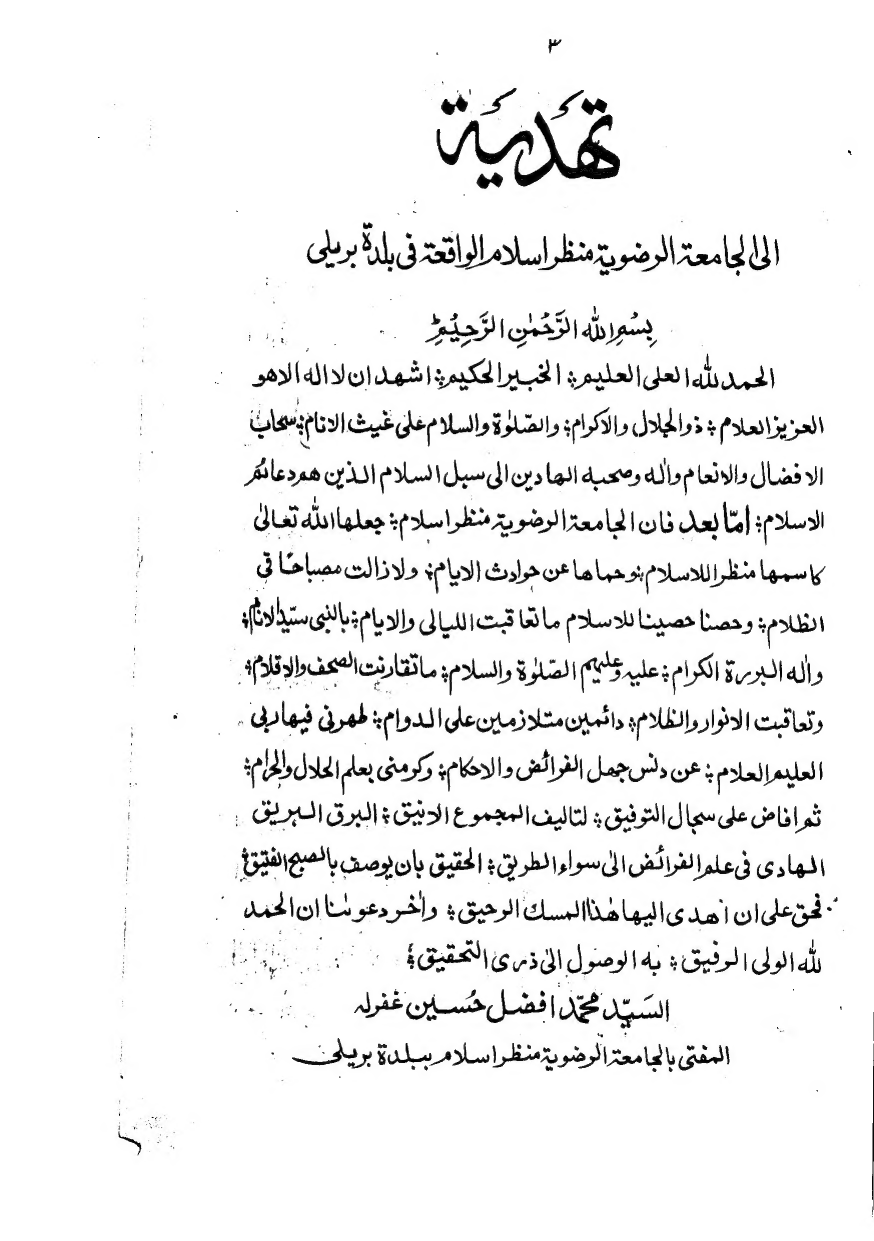 ٣
تهدية
الى الجامعة الرضوية منظر اسلام الواقعة فى بلدة بريلى
بِسْمِ اللهِ الرَّحْمٰنِ الرَّحِيْمِ
الحمد لله العلى العليم؛ الخبير الحكيم؛ اشهد ان لا اله الا هو
العزيز العلام؛ ذو الجلال والاكرام؛ والصّلوٰة والسلام على غيث الانام؛ سحاب
الافضال والانعام واٰله وصحبه الهادين الى سبل السلام الذين هم دعائم
الاسلام؛ امّا بعد فان الجامعة الرضوية منظر اسلام؛ جعلها الله تعالىٰ
كاسمها منظرا للاسلام؛ وحماها عن حوادث الايام؛ ولا زالت مصباحًا فى
الظلام؛ وحصنا حصينا للاسلام ما تعاقبت الليالى والايام؛ بالنبى سيّد الانام؛
واٰله البررة الكرام؛ عليه وعليهم الصّلوٰة والسلام؛ ما تقارنت الصحف والاقلام؛
وتعاقبت الانوار والظلام؛ دائمين متلازمين على الدوام؛ طهرنى فيها ربى
العليم العلام؛ عن دنس جهل الفرائض والاحكام؛ وكرمنى بعلم الحلال والحرام؛
ثم افاض على سجال التوفيق؛ لتاليف المجموع الانيق؛ البرق البريق
الهادى فى علم الفرائض الىٰ سواء الطريق؛ الحقيق بان يوصف بالصبح الفتيق؛
فحق على ان اهدى اليها هٰذا المسك الرحيق؛ واٰخر دعوٰنا ان الحمد
لله الولى الرفيق؛ به الوصول الىٰ ذرى التحقيق؛
السَيِّد محمّد افضل حُسين غفرله
المفتى بالجامعة الرضوية منظر اسلام ببلدة بريلى